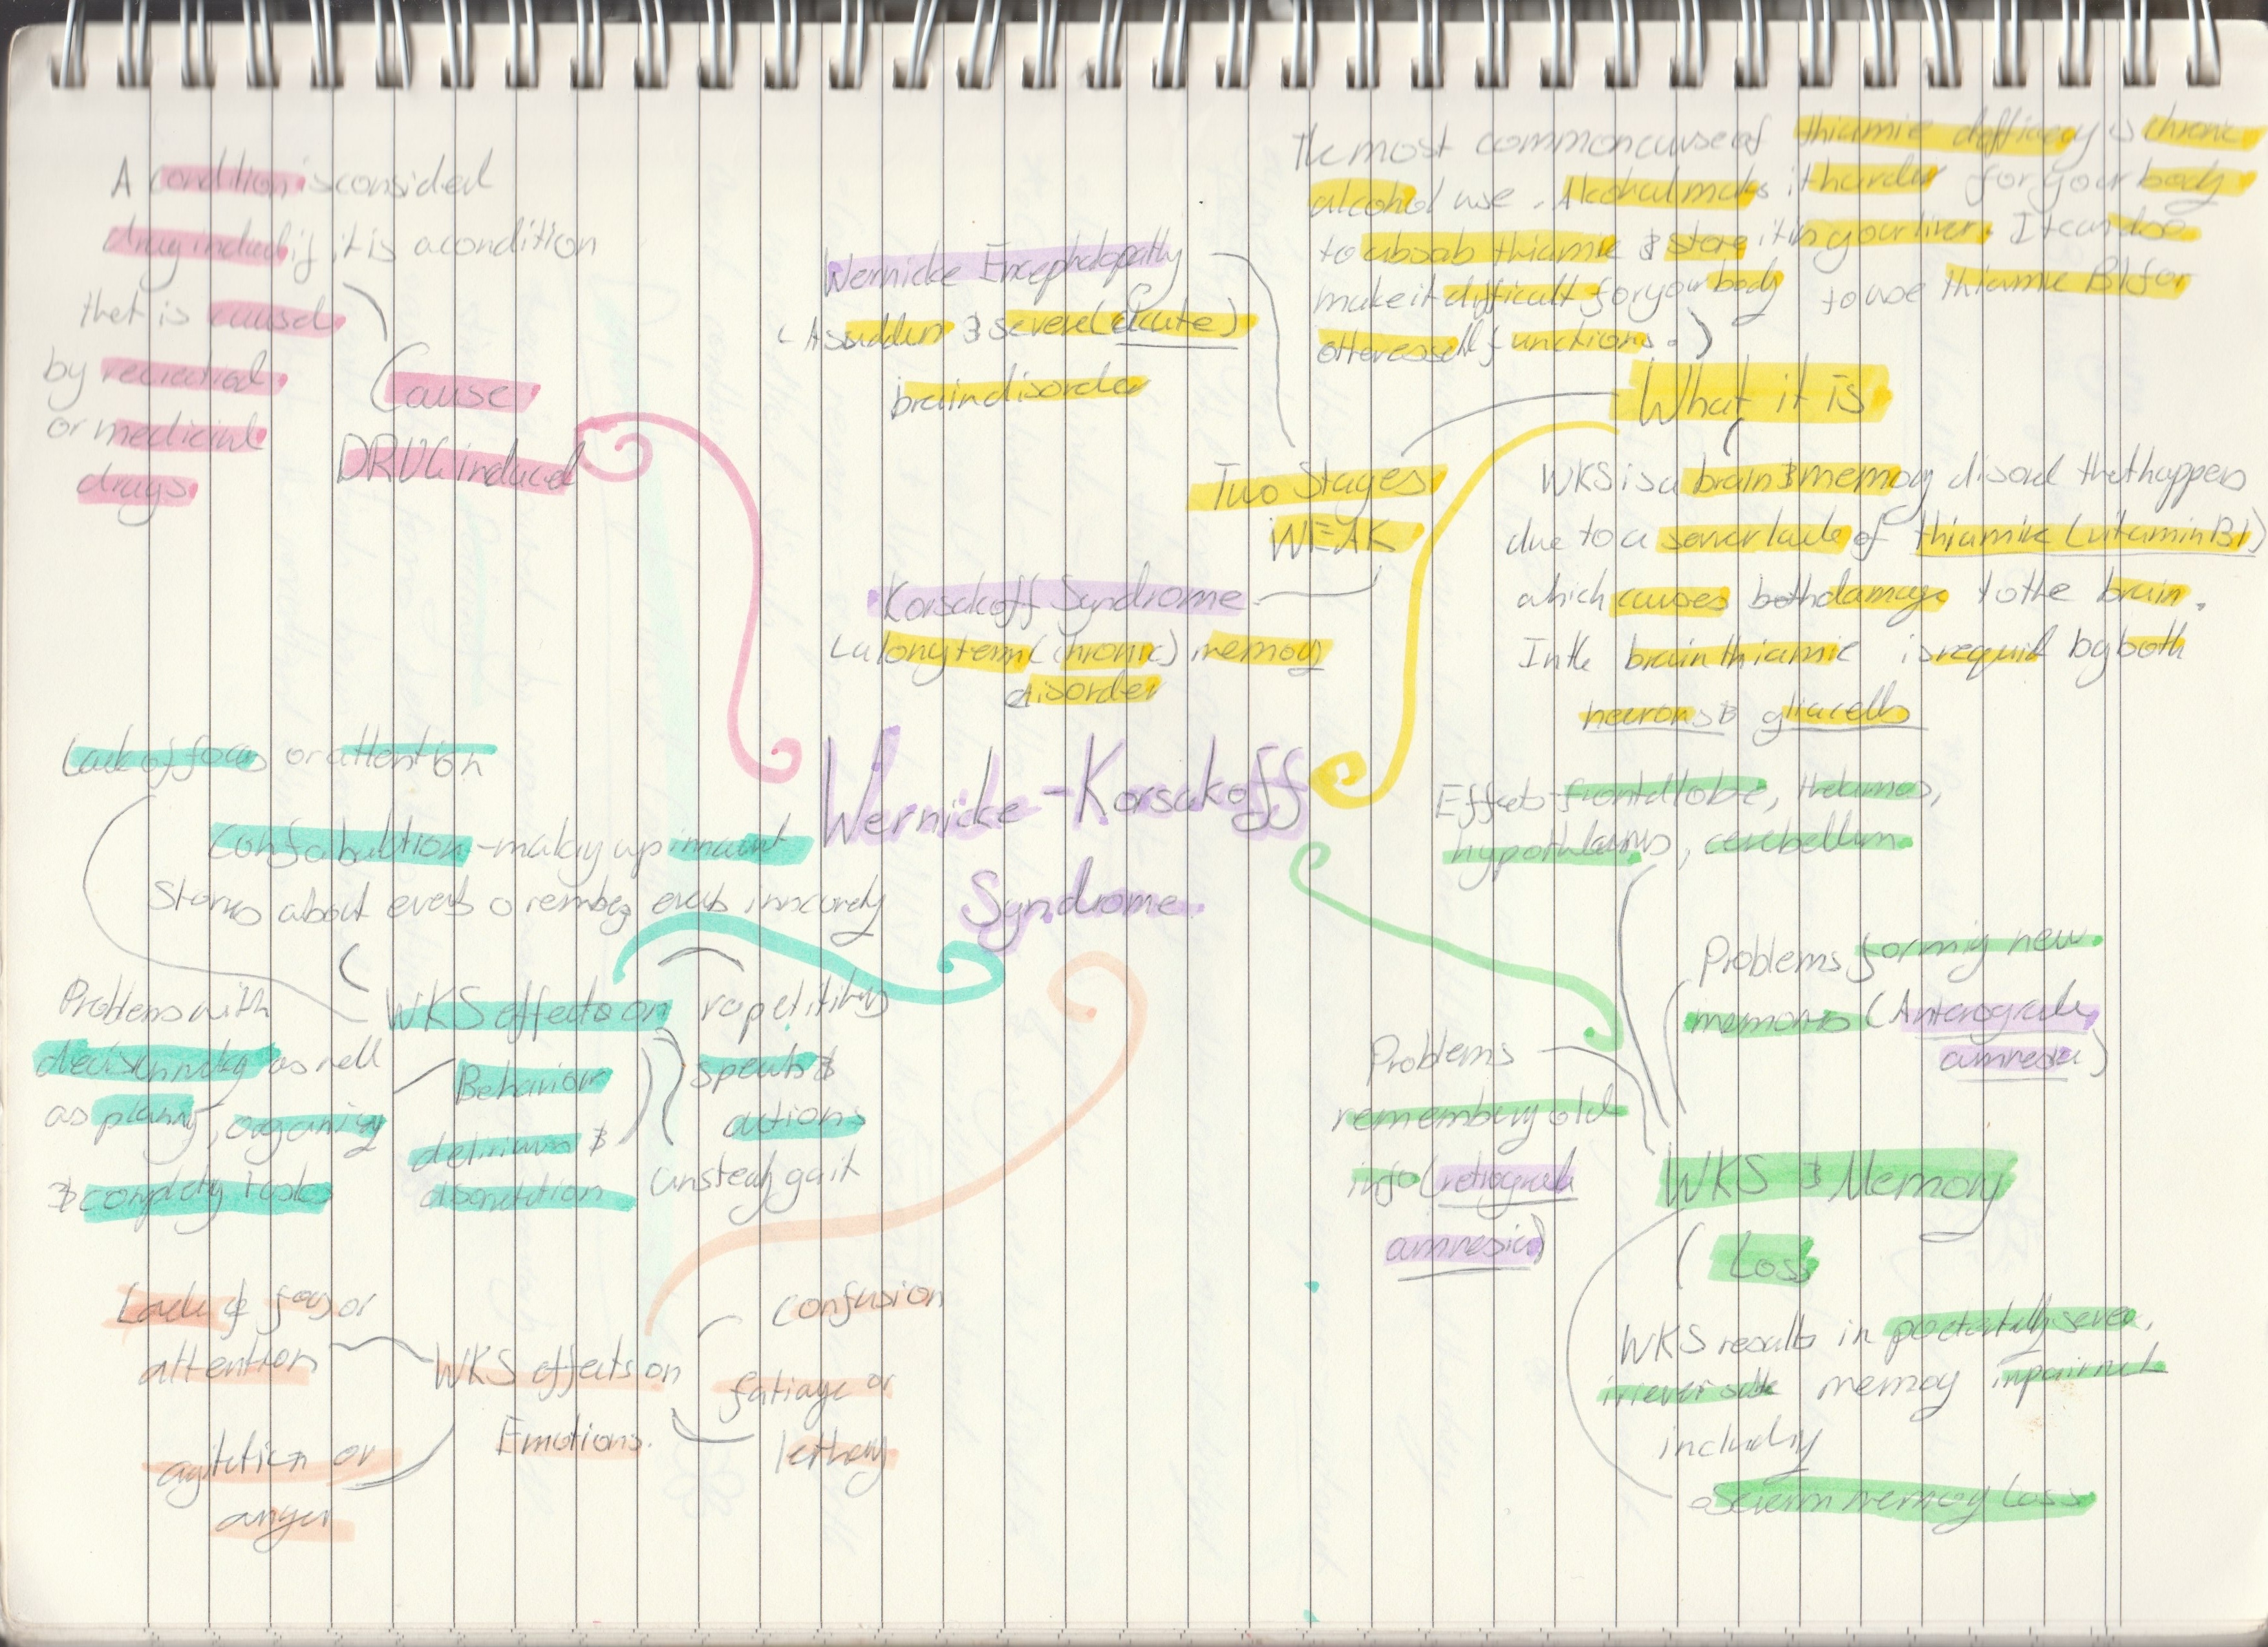 A condition is consided
drug inducd if it is a condition
that is caused
by recrectional
or medicinl
drugs
Cause
DRUG induced
Wernicke Encephelopathy
(A sudden & severe (acute)
brain disorder
The most common cause of thiamie defficiency is chronic
alcohol use. Alcohol maks it harder for your body
to absab thiamie & store it in your liver. It can also
make it difficult for your body to use thiamie B1 for
other essetl functions.)
What it is
Two Stages
WEAK
WKS is a brain & memory disord that happens
due to a sever lack of thiamine (vitamin B1)
which causes both damage to the brain.
In the brain thiamie is requird by both
neurons & glia cells
Korsakoff Syndrome
(a long term (chronic) memory
disorder
Wernicke-Korsakoff
Syndrome
Lack of focus or attention
Confabultion - making up innacurt
Stories about events o rembeg evets innacurely
WKS effects on
Behaviour
Problems with
decision makg as well
as planng, organisig
& completg tasks
delirium &
disorentation
rapetitivg
speuts &
actions
unsteady gait
Effects frontal lobe, thalamus,
hypothlamus, cerebellum
Problems formig new
memories (Anterograde
amnesia)
Problems
rememberg old
info (retrograde
amnesia)
WKS & Memory
(Loss
WKS results in potentially sever,
irreversable memory impairmet
includig
a Severm memory loss
Lack of focus or
attention
agitation or
anger
WKS effects on
Emotions.
confusion
fatiage or
lethagy